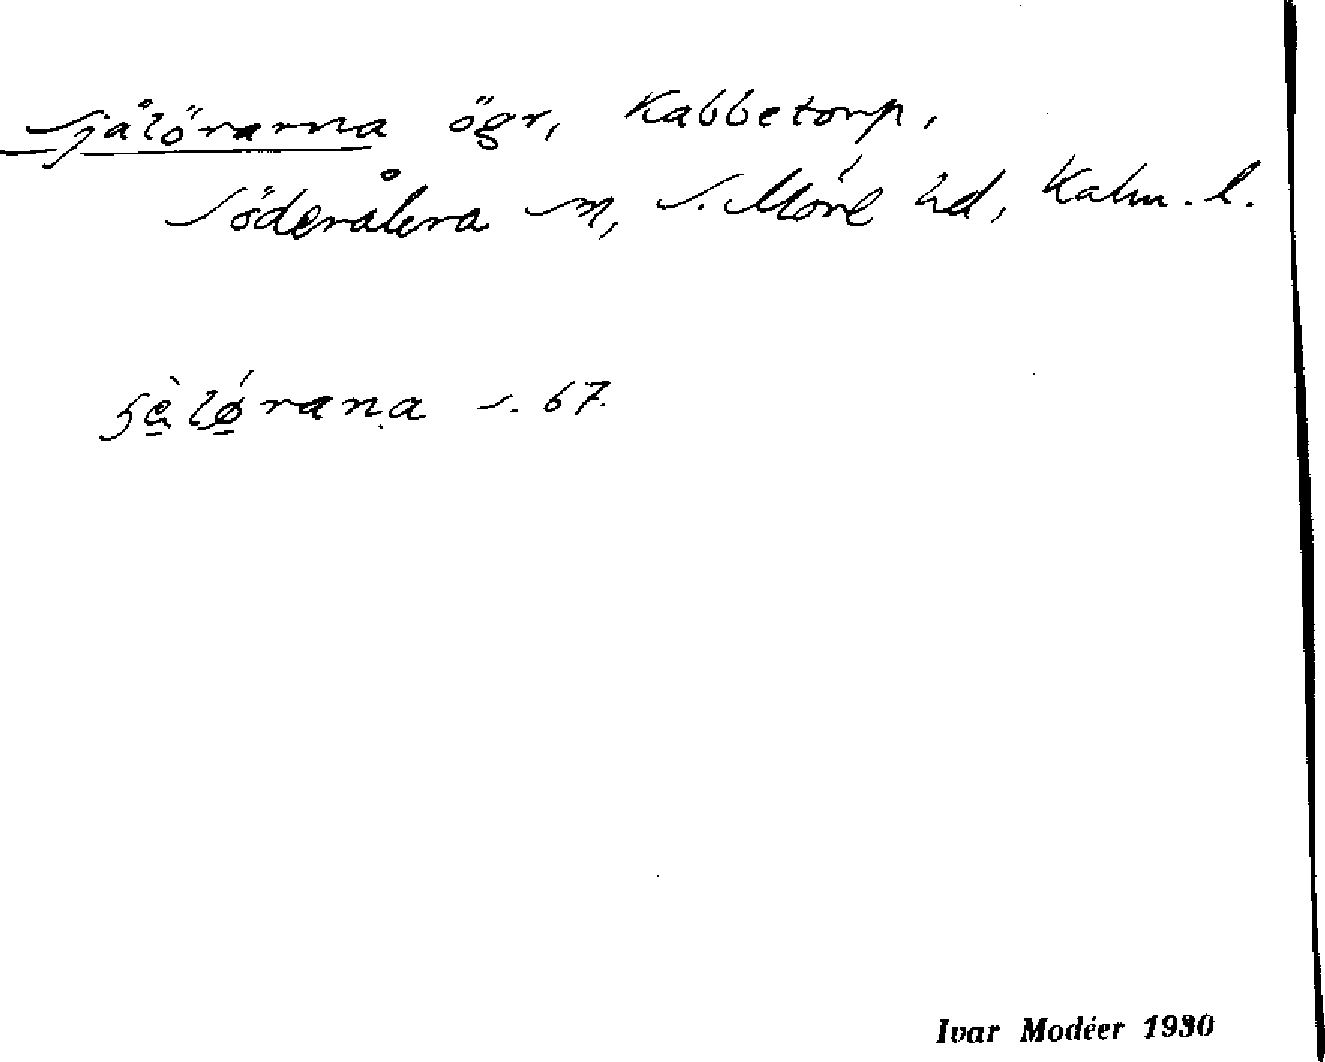 Sjålörarna ögr, Kabbetorp,
Söderåkra sn, S. Möre hd, Kalm. l.
s. 67.
Ivar Modéer 1930